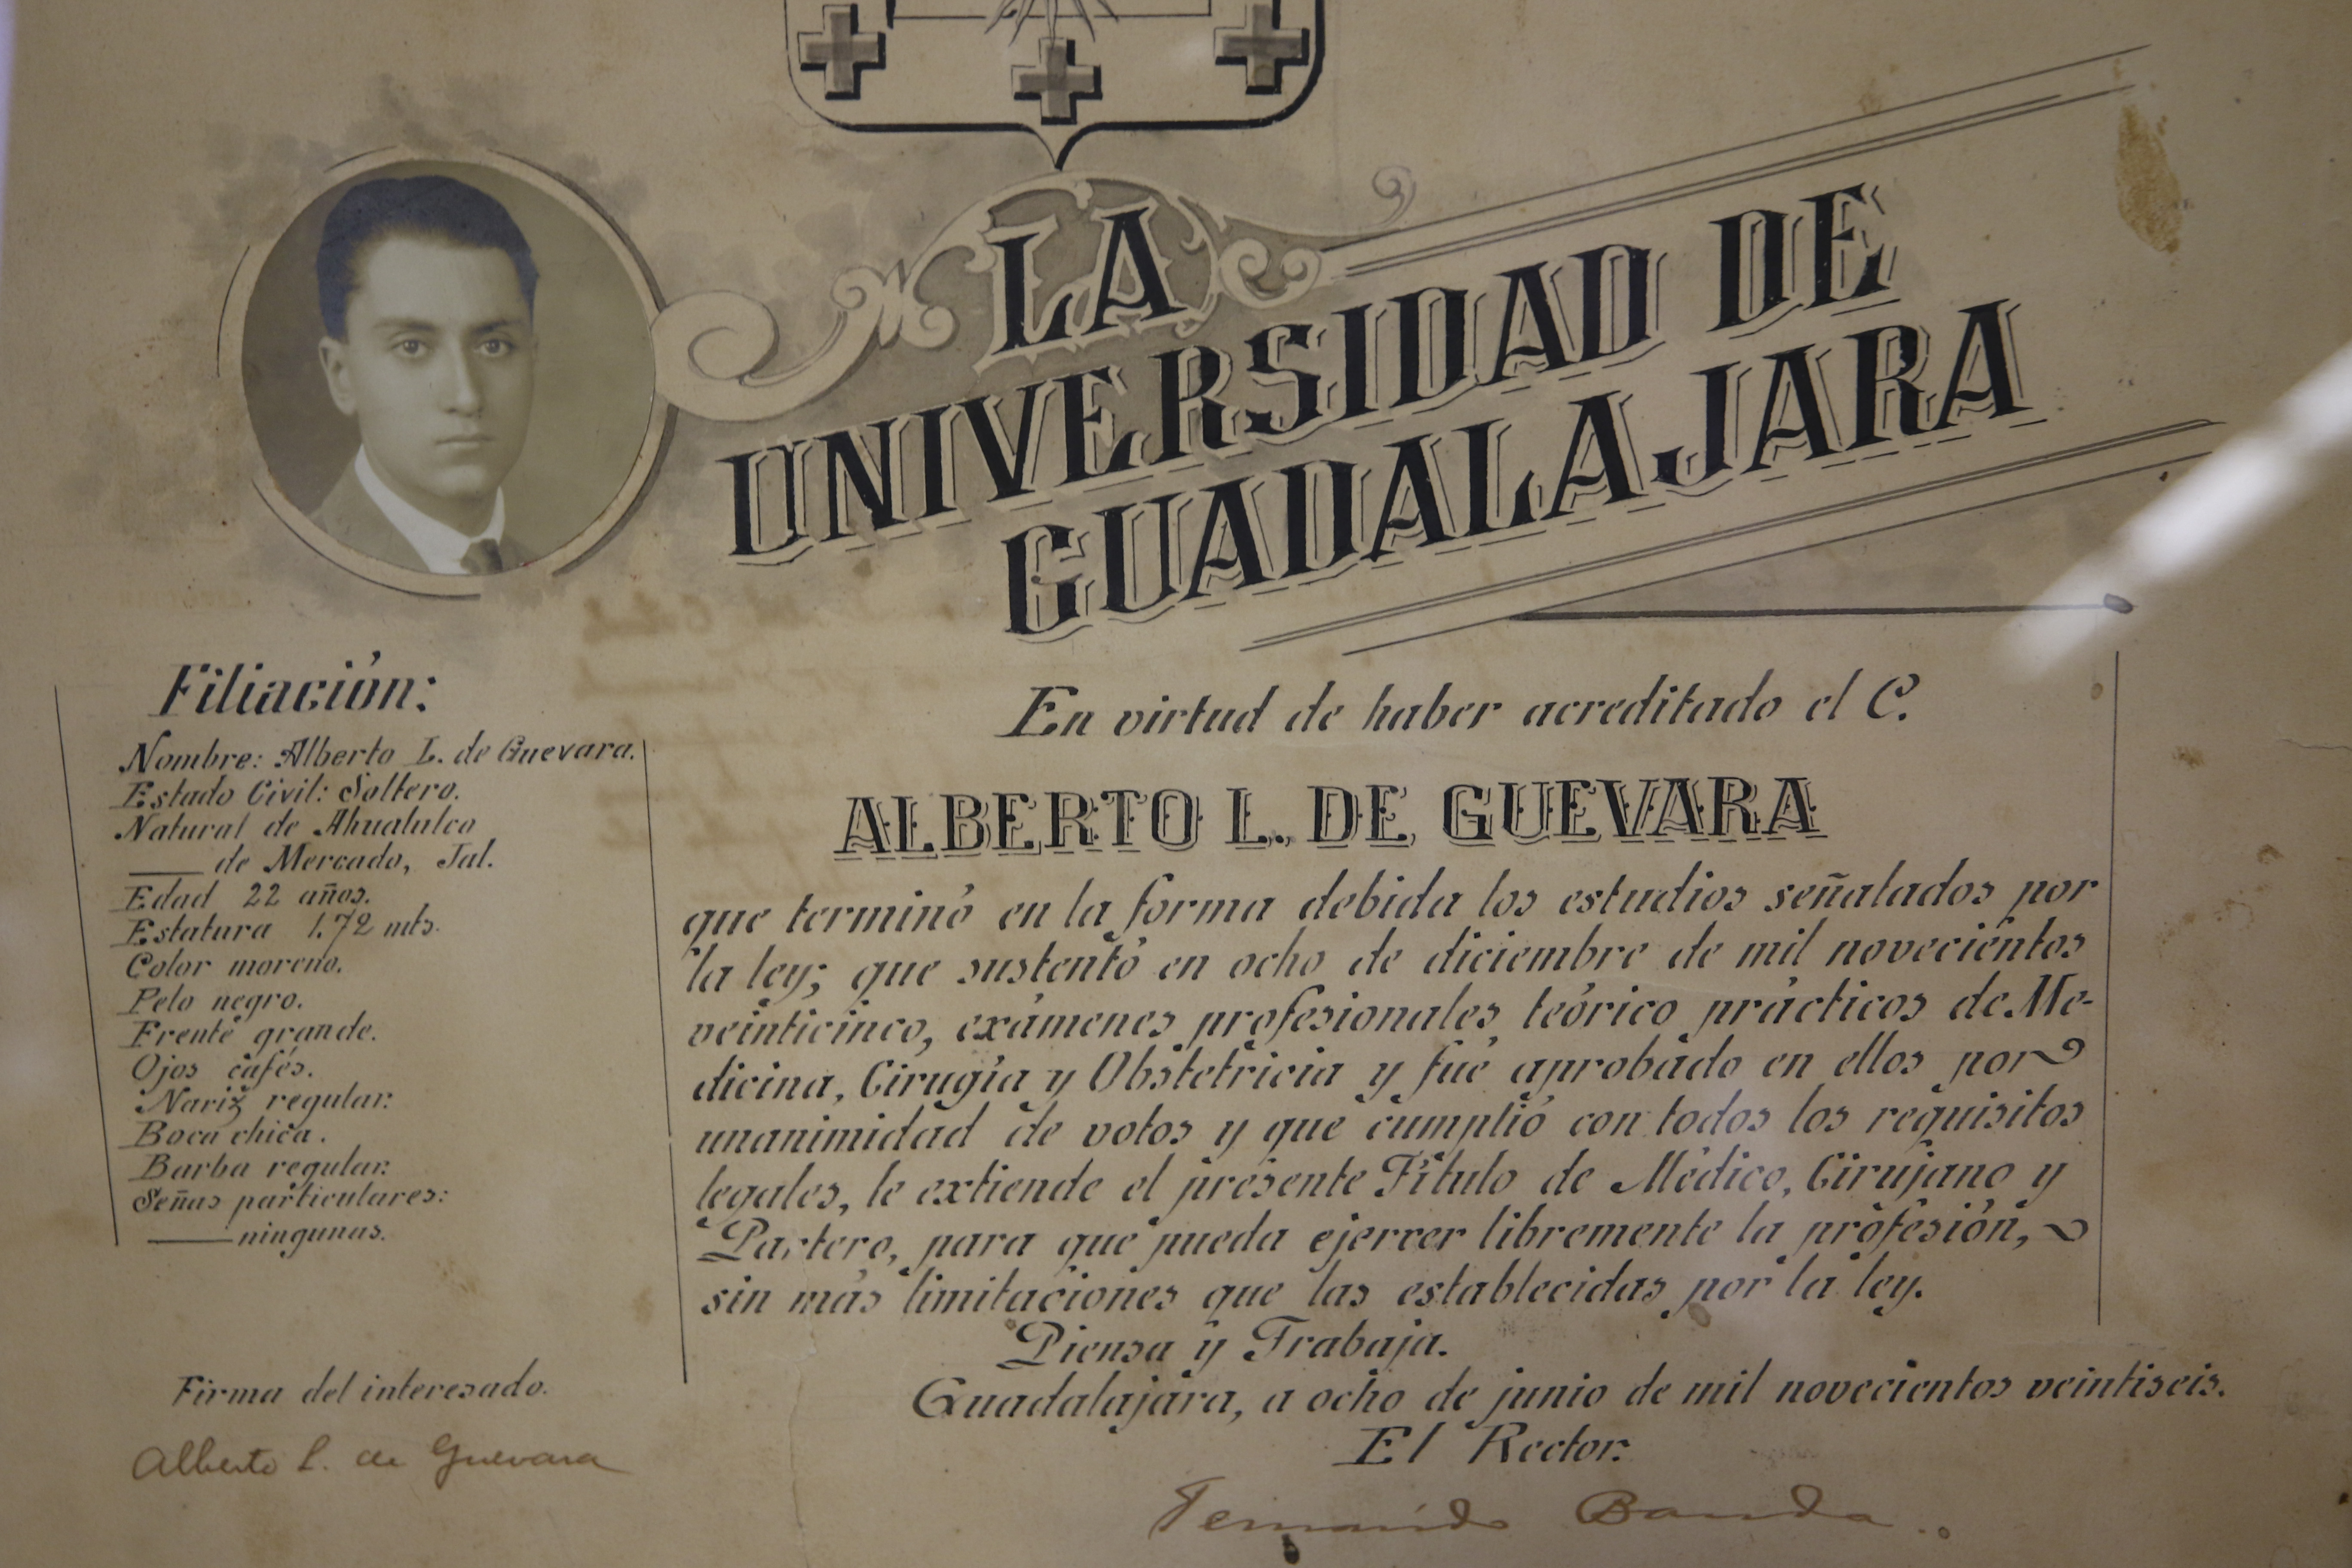 LA
UNIVERSIDAD DE
GUADALAJARA
Filiación:
Nombre: Alberto L. de Guevara.
Estado Civil: Soltero.
Natural de Ahualulco
de Mercado, Jal.
Edad 22 años.
Estatura 1.72 mts.
Color moreno.
Pelo negro.
Frente grande.
Ojos cafés.
Nariz regular.
Boca chica.
Barba regular.
Señas particulares:
ningunas.
Firma del interesado.
Alberto L. de Guevara
En virtud de haber acreditado el C.
ALBERTO L. DE GUEVARA
que terminó en la forma debida los estudios señalados por
la ley; que sustentó en ocho de diciembre de mil novecientos
veinticinco, exámenes profesionales teórico prácticos de Me-
dicina, Cirugía y Obstetricia y fué aprobado en ellos por
unanimidad de votos y que cumplió con todos los requisitos
legales, le extiende el presente Título de Médico, Cirujano y
Partero, para que pueda ejercer libremente la profesión,
sin más limitaciones que las establecidas por la ley.
Piensa y Trabaja.
Guadalajara, a ocho de junio de mil novecientos veintiseis.
El Rector.
Fernando Banda